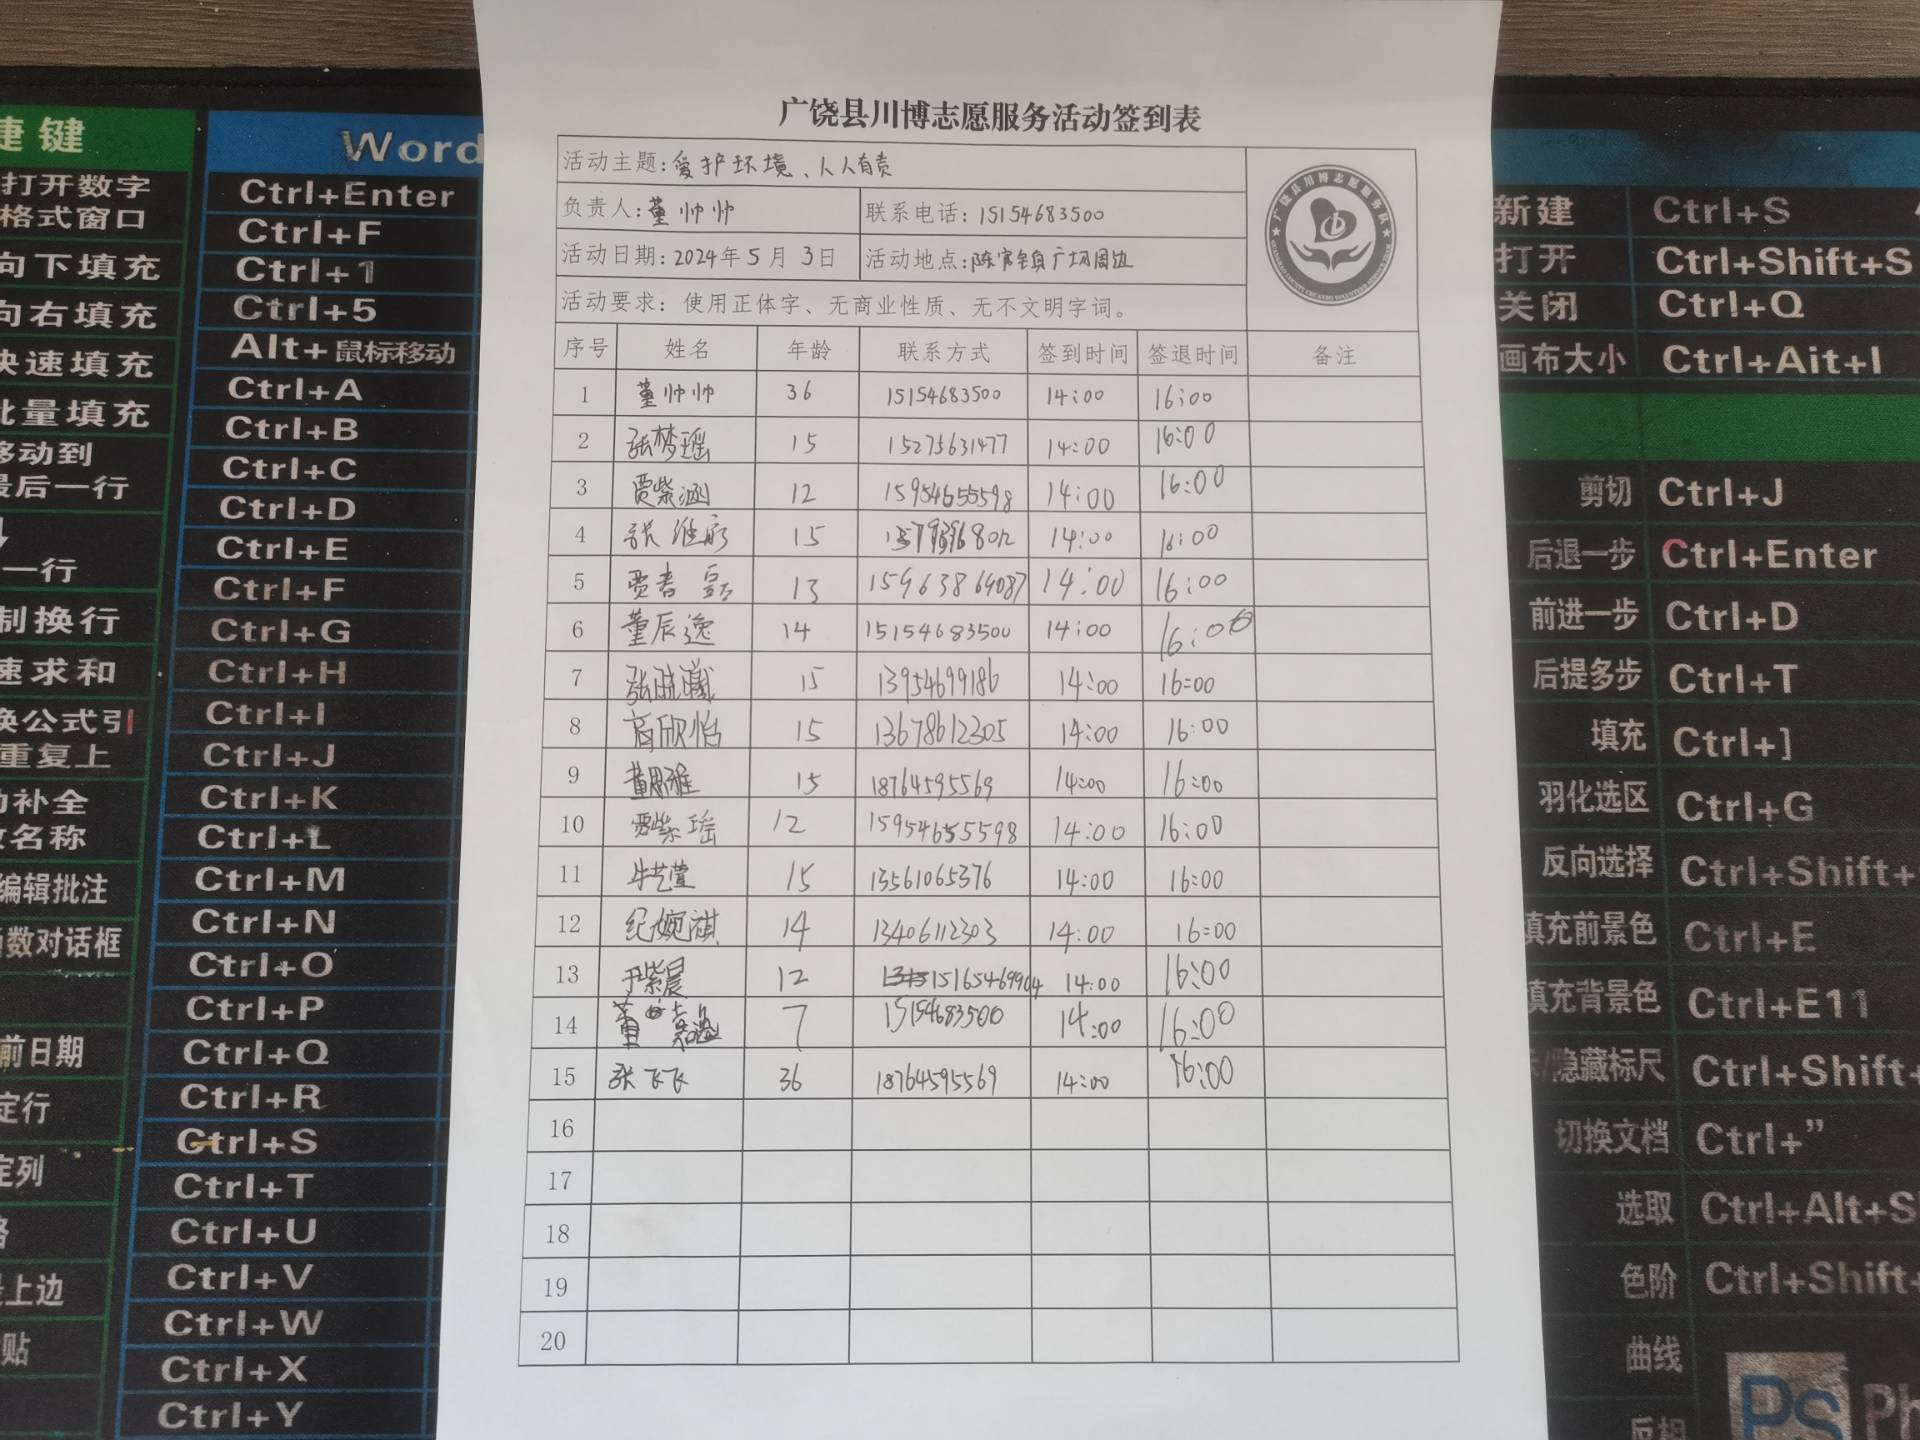 广饶县川博志愿服务活动签到表
活动主题:爱护环境、人人有责
负责人:董帅帅 联系电话:15154683500
活动日期:2024年5月3日 活动地点:陈官镇广场周边
活动要求:使用正体字、无商业性质、无不文明字词。
广饶县川博志愿服务队
序号 姓名 年龄 联系方式 签到时间 签退时间 备注
1 董帅帅 36 15154683500 14:00 16:00
2 张梦瑶 15 15275631477 14:00 16:00
3 贾紫涵 12 15954655598 14:00 16:00
4 张 15 14:00 16:00
5 贾 13 15963864087 14:00 16:00
6 董辰逸 14 15154683500 14:00 16:00
7 张 15 13954699186 14:00 16:00
8 商欣怡 15 13678612305 14:00 16:00
9 董思雅 15 18764595569 14:00 16:00
10 贾紫瑶 12 15954655598 14:00 16:00
11 牛艺萱 15 13561065376 14:00 16:00
12 纪婉祺 14 13406112303 14:00 16:00
13 于紫晨 12 15165469904 14:00 16:00
14 董 7 15154683500 14:00 16:00
15 张飞飞 36 18764595569 14:00 16:00
16
17
18
19
20
捷键
打开数字
格式窗口
向下填充
向右填充
快速填充
批量填充
移动到
最后一行
一行
制换行
速求和
换公式引
重复上
动补全
数名称
编辑批注
函数对话框
前日期
定行
定列
上边
贴
Word
Ctrl+Enter
Ctrl+F
Ctrl+1
Ctrl+5
Alt+鼠标移动
Ctrl+A
Ctrl+B
Ctrl+C
Ctrl+D
Ctrl+E
Ctrl+F
Ctrl+G
Ctrl+H
Ctrl+I
Ctrl+J
Ctrl+K
Ctrl+L
Ctrl+M
Ctrl+N
Ctrl+O
Ctrl+P
Ctrl+Q
Ctrl+R
Ctrl+S
Ctrl+T
Ctrl+U
Ctrl+V
Ctrl+W
Ctrl+X
Ctrl+Y
新建 Ctrl+S
打开 Ctrl+Shift+S
关闭 Ctrl+Q
画布大小 Ctrl+Ait+I
剪切 Ctrl+J
后退一步 Ctrl+Enter
前进一步 Ctrl+D
后提多步 Ctrl+T
填充 Ctrl+]
羽化选区 Ctrl+G
反向选择 Ctrl+Shift+
填充前景色 Ctrl+E
填充背景色 Ctrl+E11
/隐藏标尺 Ctrl+Shift+
切换文档 Ctrl+”
选取 Ctrl+Alt+S
色阶 Ctrl+Shift+
曲线
反相
Ps Ph